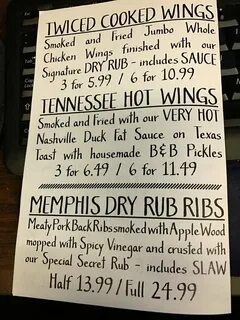 TWICED COOKED WINGS
Smoked and Fried Jumbo Whole
Chicken Wings finished with our
Signature DRY RUB - includes SAUCE
3 for 5.99 / 6 for 10.99
TENNESSEE HOT WINGS
Smoked and Fried with our VERY HOT
Nashville Duck Fat Sauce on Texas
Toast with housemade B&B Pickles
3 for 6.49 / 6 for 11.49
MEMPHIS DRY RUB RIBS
Meaty Pork Back Ribs smoked with Apple Wood
mopped with Spicy Vinegar and crusted with
our Special Secret Rub - includes SLAW
Half 13.99 / Full 24.99